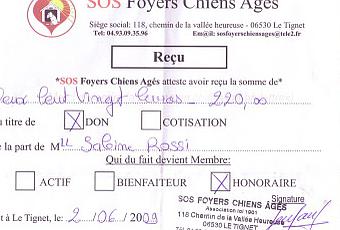 SOS Foyers Chiens Agés
Siège social: 118, chemin de la vallée heureuse - 06530 Le Tignet
Tel: 04.93.09.35.96 Em@il: sosfoyerschiensages@tele2.fr
Reçu
*SOS Foyers Chiens Agés atteste avoir reçu la somme de*
Deux Cent Vingt Euros - 220,00
u titre de X DON COTISATION
e la part de Mlle Sabine Rossi
Qui du fait devient Membre:
ACTIF BIENFAITEUR X HONORAIRE
SOS FOYERS CHIENS AGÉS Signature
Association loi 1901
t à Le Tignet, le 2 /06 / 2009 118 Chemin de la Vallée Heureuse
06530 LE TIGNET